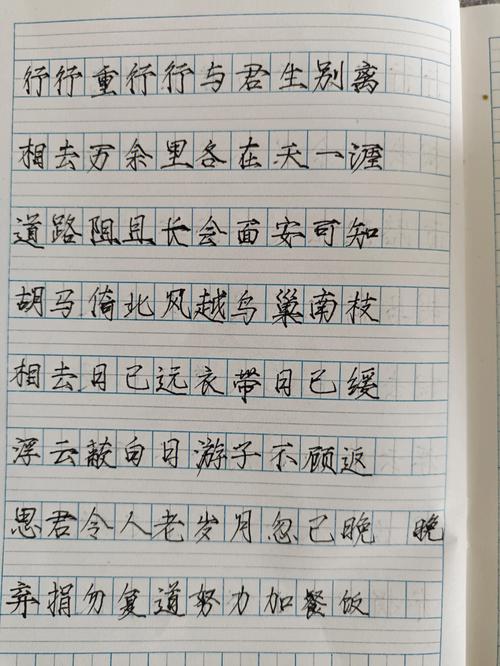 行行重行行与君生别离
相去万余里各在天一涯
道路阻且长会面安可知
胡马倚北风越鸟巢南枝
相去日已远衣带日已缓
浮云蔽白日游子不顾返
思君令人老岁月忽已晚 晚
弃捐勿复道努力加餐饭